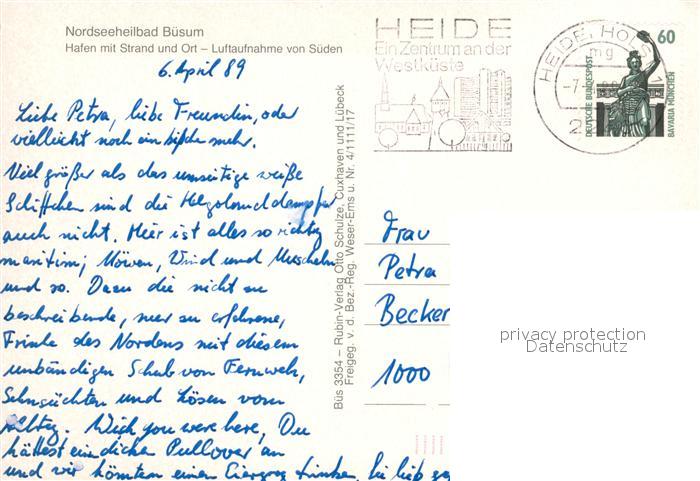 Nordseeheilbad Büsum
Hafen mit Strand und Ort – Luftaufnahme von Süden
6. April 89
Liebe Petra, liebe Freundin, oder
vielleicht noch ein bißchen mehr.
Viel größer als das umseitige weiße
Schiffchen sind die Helgolanddampfer
auch nicht. Hier ist alles so richtig
maritim; Möwen, Wind und Muscheln
und so. Dazu die nicht zu
beschreibende, nur zu erfahrene,
Frische des Nordens mit diesem
unbändigen Schub von Fernweh,
Sehnsüchten und Lösen vom
Alltag. Wish you were here, Du
hättest ein dicken Pullover an
und wir könnten einen Eiergrog trinken,
Büs 3354 – Rubin-Verlag Otto Schulze, Cuxhaven und Lübeck
Freigeg. v. d. Bez.-Reg. Weser-Ems u. Nr. 4/1111/17
HEIDE
Ein Zentrum an der
Westküste
HEIDE, HOLST
mg
-7.
2
60
DEUTSCHE BUNDESPOST
BAVARIA MÜNCHEN
Frau
Petra
Becker
1000
privacy protection
Datenschutz